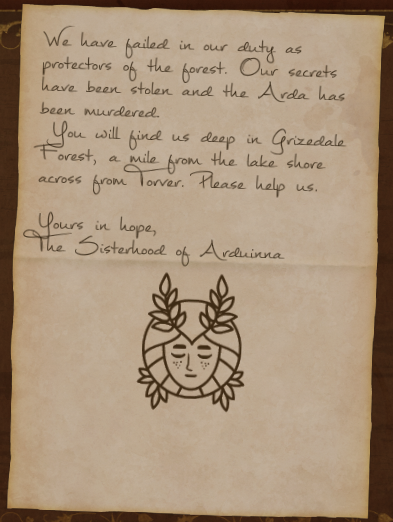 We have failed in our duty as
protectors of the forest. Our secrets
have been stolen and the Arda has
been murdered.
You will find us deep in Grizedale
Forest, a mile from the lake shore
across from Torver. Please help us.
Yours in hope,
The Sisterhood of Arduinna